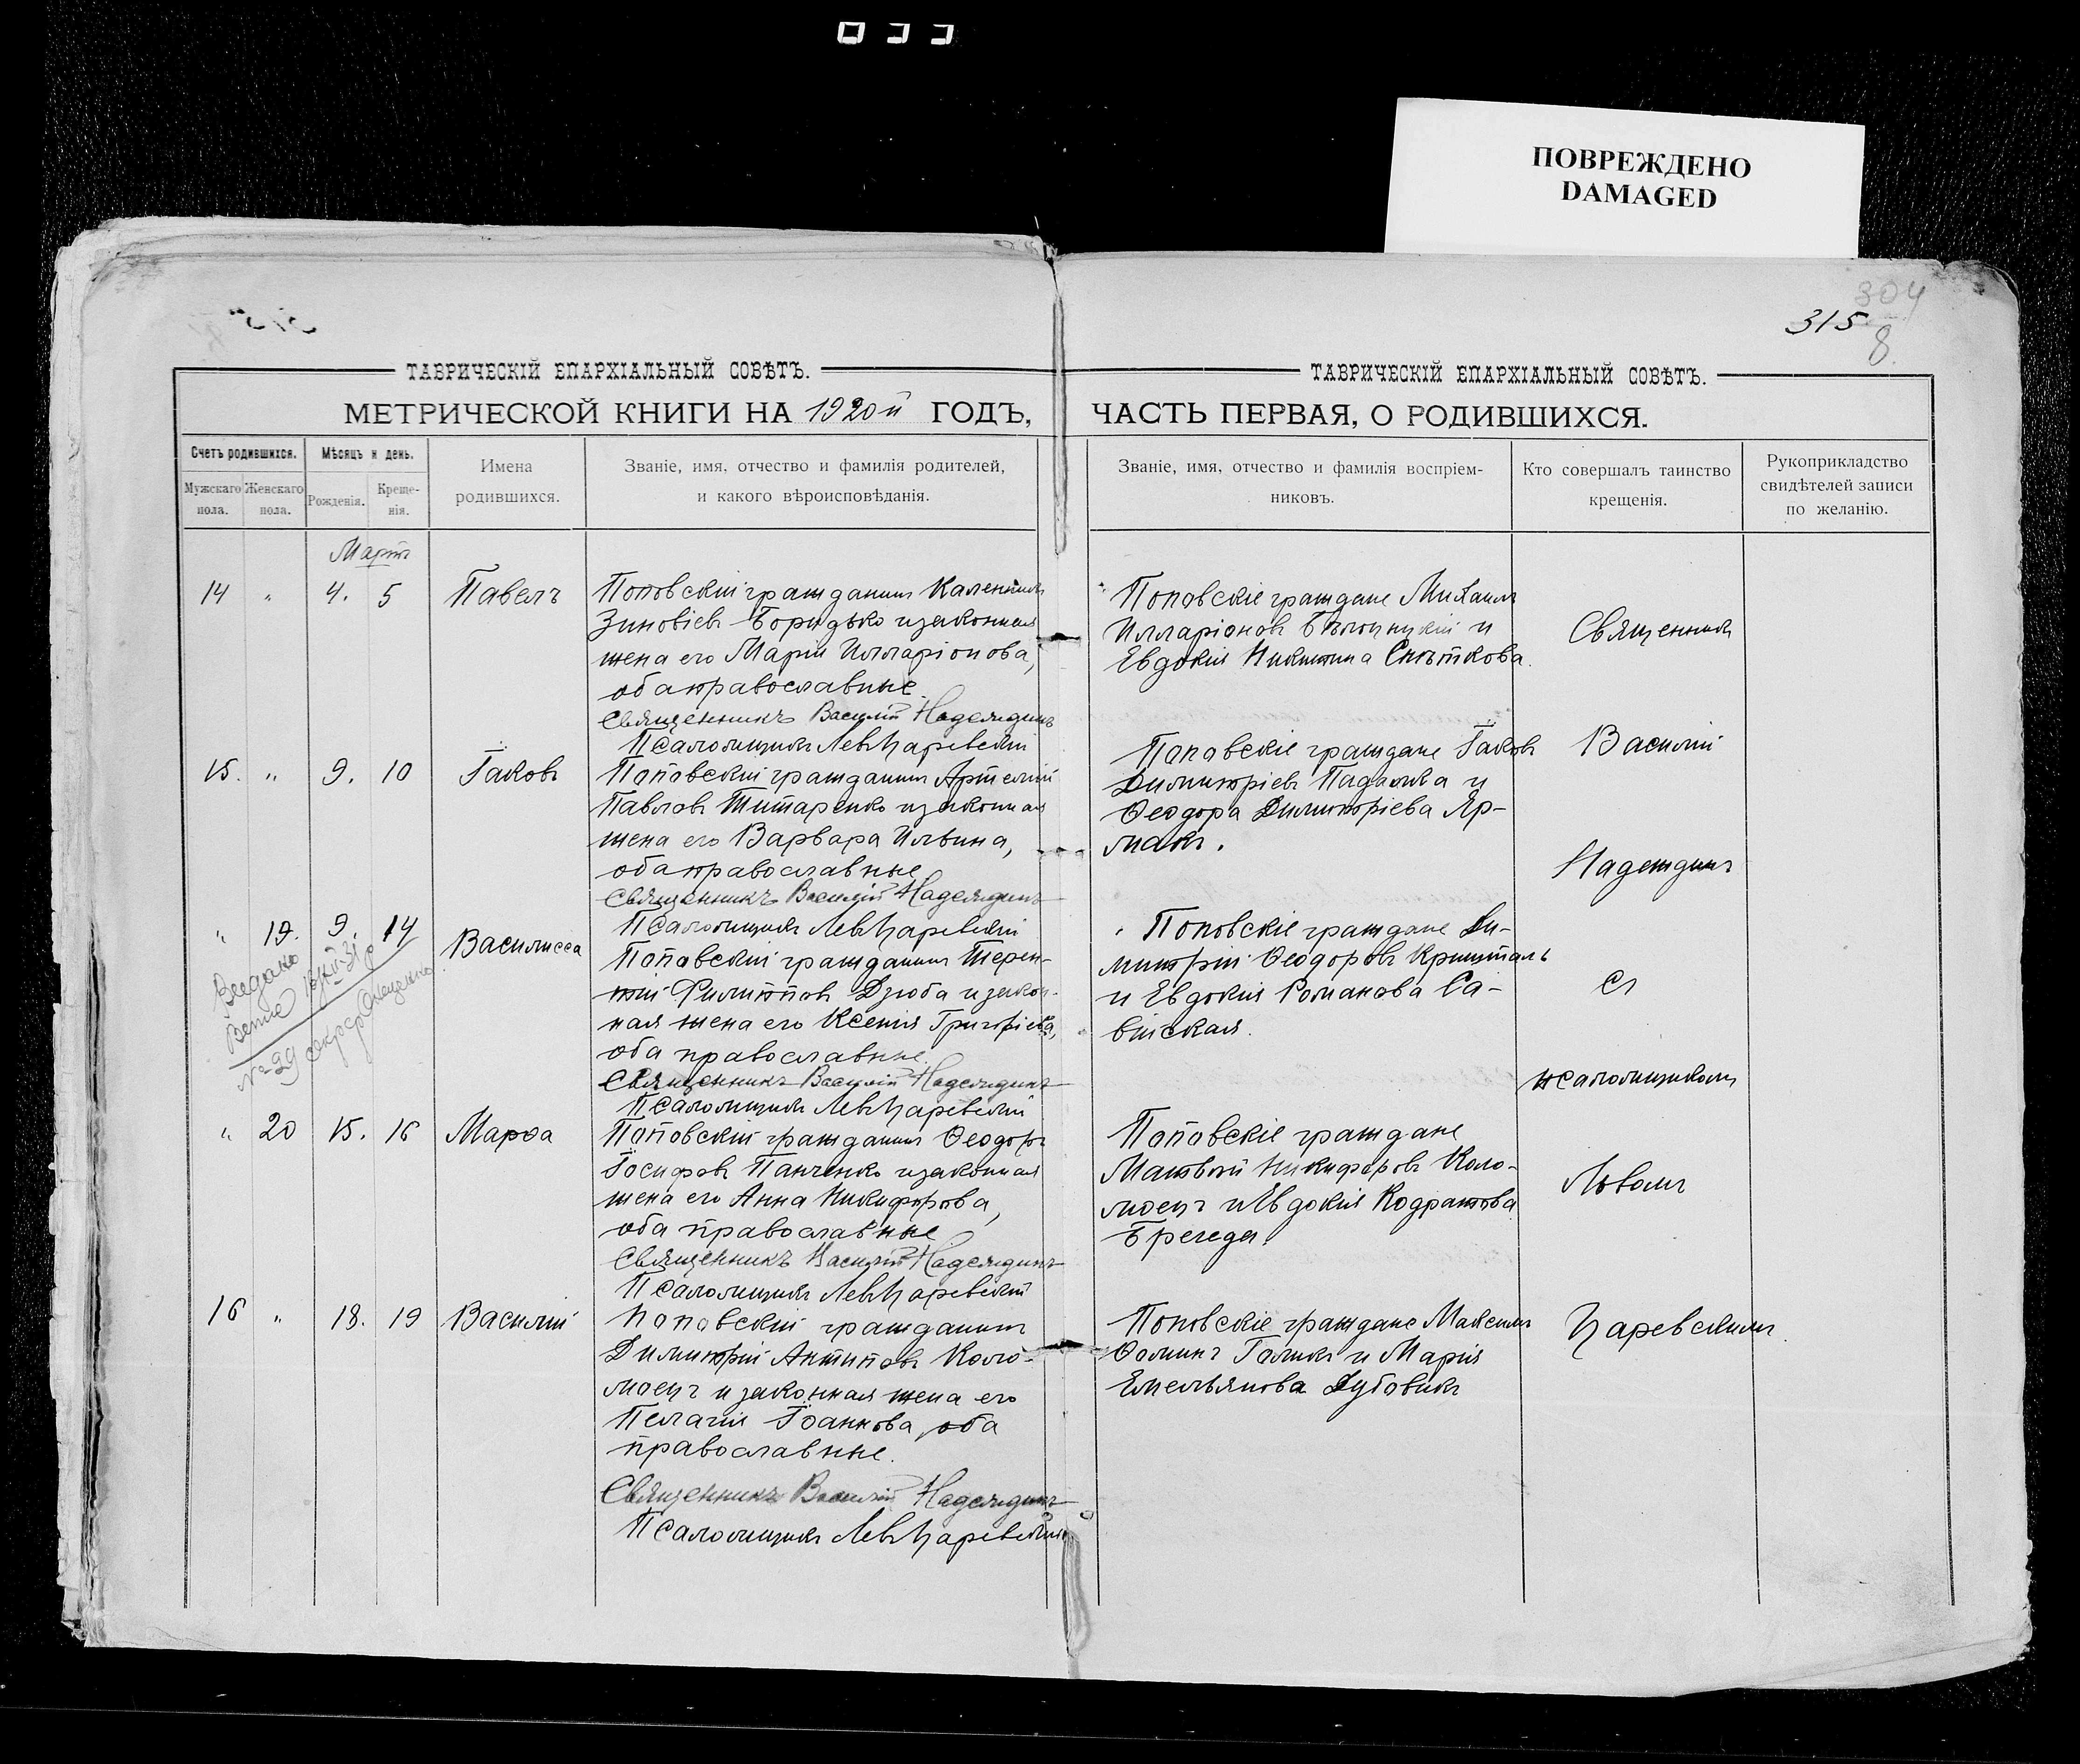 ПОВРЕЖДЕНО
DAMAGED
304
315
8.
ТАВРИЧЕСКІЙ ЕПАРХІАЛЬНЫЙ СОВѢТЪ.
МЕТРИЧЕСКОЙ КНИГИ НА 1920й ГОДЪ,
Счетъ родившихся.
Мужскаго пола.
Женскаго пола.
Мѣсяцъ и день.
Рожденія.
Креще-
нія.
Имена
родившихся.
Званіе, имя, отчество и фамилія родителей,
и какого вѣроисповѣданія.
ТАВРИЧЕСКІЙ ЕПАРХІАЛЬНЫЙ СОВѢТЪ.
ЧАСТЬ ПЕРВАЯ, О РОДИВШИХСЯ.
Званіе, имя, отчество и фамилія воспріем-
никовъ.
Кто совершалъ таинство
крещенія.
Рукоприкладство
свидѣтелей записи
по желанію.
Мартъ
14 " 4. 5 Павелъ
Поповскій гражданинъ
Зиновіевъ и законная
жена его Марія Илларіонова,
оба православные.
Священникъ Василій Надеждинъ
Псаломщикъ Левъ Царевскій
Поповскіе граждане Михаилъ
Илларіоновъ и
Евдокія Никитина
15. " 9. 10 Іаковъ
Поповскій гражданинъ Артемій
Павловъ Титаренко и законная
жена его Варвара Ильина,
оба православные
Священникъ Василій Надеждинъ
Псаломщикъ Левъ Царевскій
Поповскіе граждане Іаковъ
Димитріевъ Падалка и
Ѳеодора Димитріева Яр-
макъ.
" 19. 9. 14 Василисса
Поповскій гражданинъ Терен-
тій Филипповъ Дзюба и закон-
ная жена его Ксенія Григорьева,
оба православные.
Священникъ Василій Надеждинъ
Псаломщикъ Левъ Царевскій
Поповскіе граждане Ди-
митрій Ѳеодоровъ Кришталь
и Евдокія Романова Са-
війская.
№ 29
" 20 15. 16 Марѳа
Поповскій гражданинъ Ѳеодоръ
Іосифовъ Панченко и законная
жена его Анна Никифорова,
оба православные
Священникъ Василій Надеждинъ
Псаломщикъ Левъ Царевскій
Поповскіе граждане
Матвѣй Никифоровъ Коло-
моецъ и Евдокія Кодратова
16 " 18. 19 Василій
Поповскій гражданинъ
Димитрій Антиповъ Коло-
моецъ и законная жена его
Пелагія Іоаннова, оба
православные.
Священникъ Василій Надеждинъ
Псаломщикъ Левъ Царевскій
Поповскіе граждане Максимъ
Ѳоминъ и Марія
Емельянова Дубовикъ
Священникъ
Василій
Надеждинъ
съ
псаломщикомъ
Львомъ
Царевскимъ.